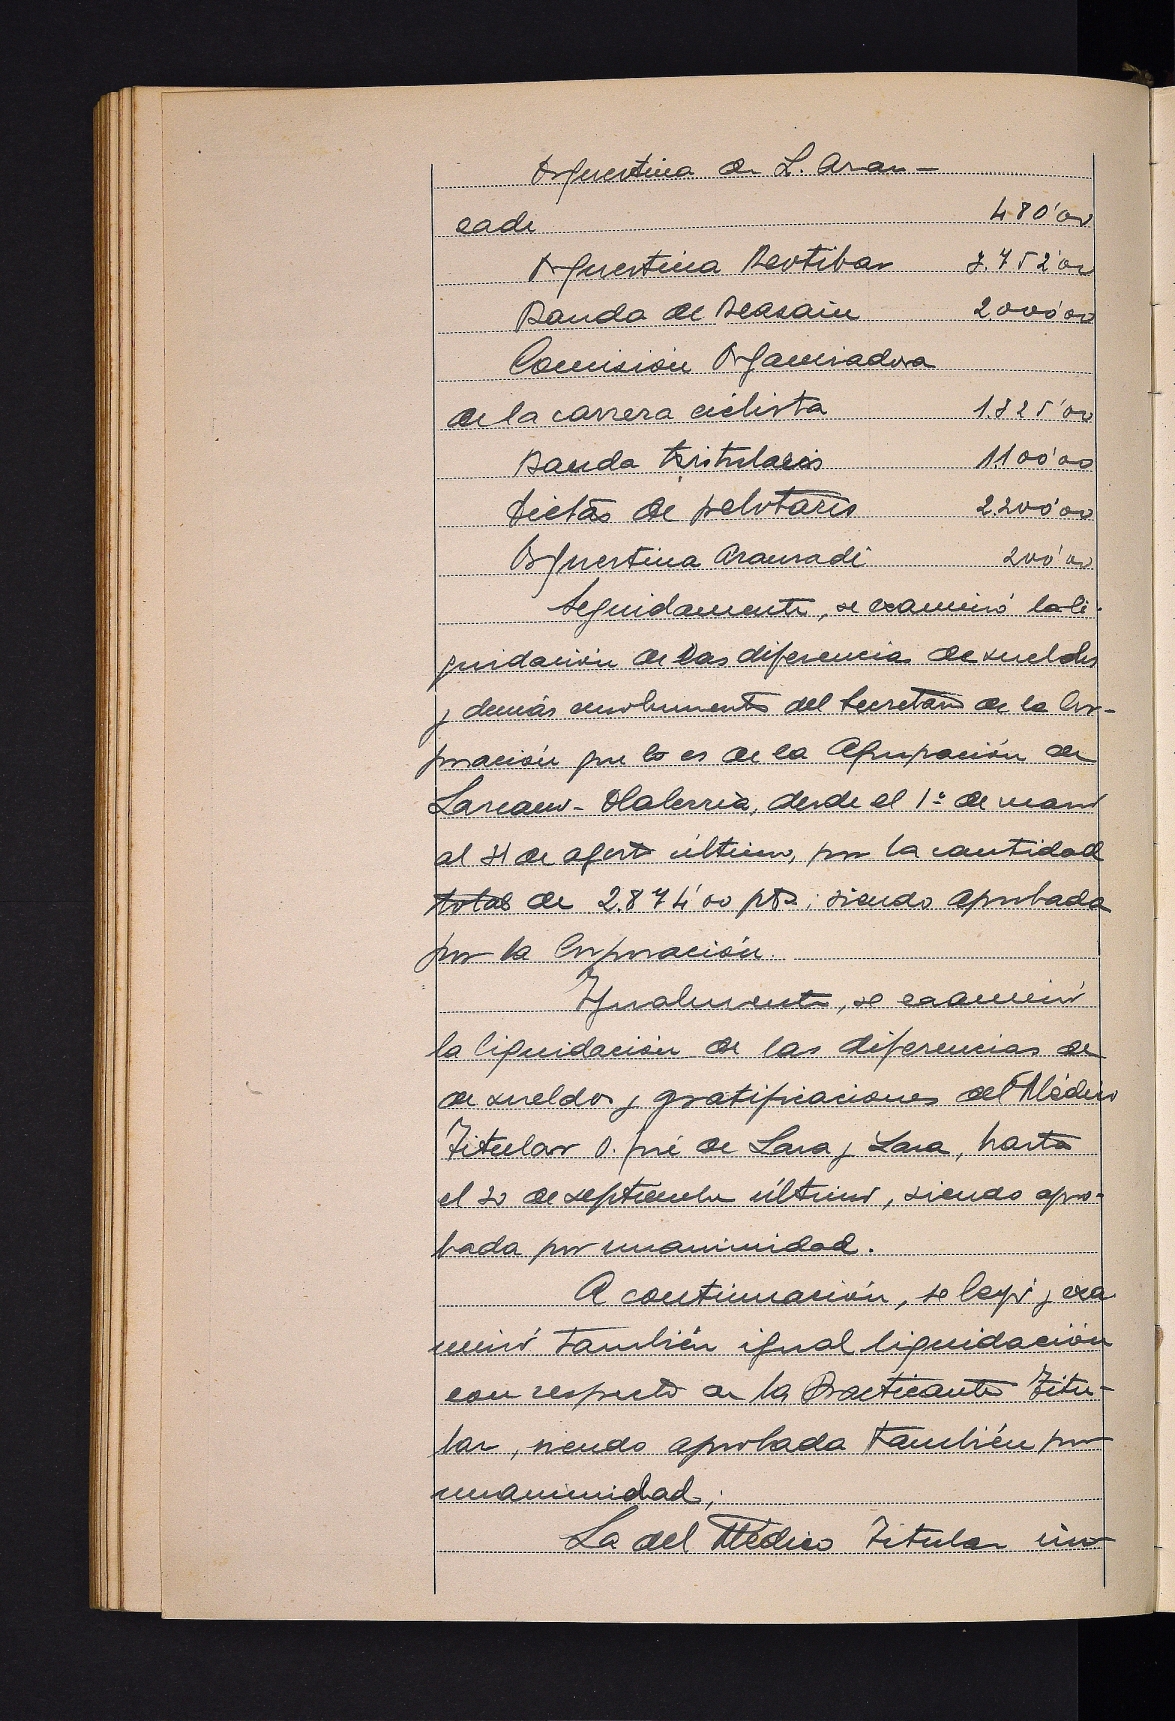 Orquestina de L. Aran-
cade 480'00
Orquestina Beotibar 3.752'00
Banda de Beasain 2.000'00
Comisión Organizadora
de la carrera ciclista 1.325'00
Banda txistularis 1.100'00
Dietas de pelotaris 2.200'00
Orquestina Aranzadi 200'00
Seguidamente, se examinó la li-
quidación de las diferencias de sueldos
y demás emolumentos del Secretario de la Cor-
poración que lo es de la Agrupación de
Lazcano-Olaberria, desde el 1º de marzo
al 31 de agosto último, por la cantidad
total de 2.874'00 pts.; siendo aprobada
por la Corporación.
Igualmente, se examinó
la liquidación de las diferencias de
de sueldos y gratificaciones del Médico
Titular D. José de Lasa y Lasa, hasta
el 30 de septiembre último, siendo apro-
bada por unanimidad.
A continuación, se leyó y exa
minó también igual liquidación
con respecto a la Practicante Titu-
lar, siendo aprobada también por
unanimidad;
La del Médico Titular im